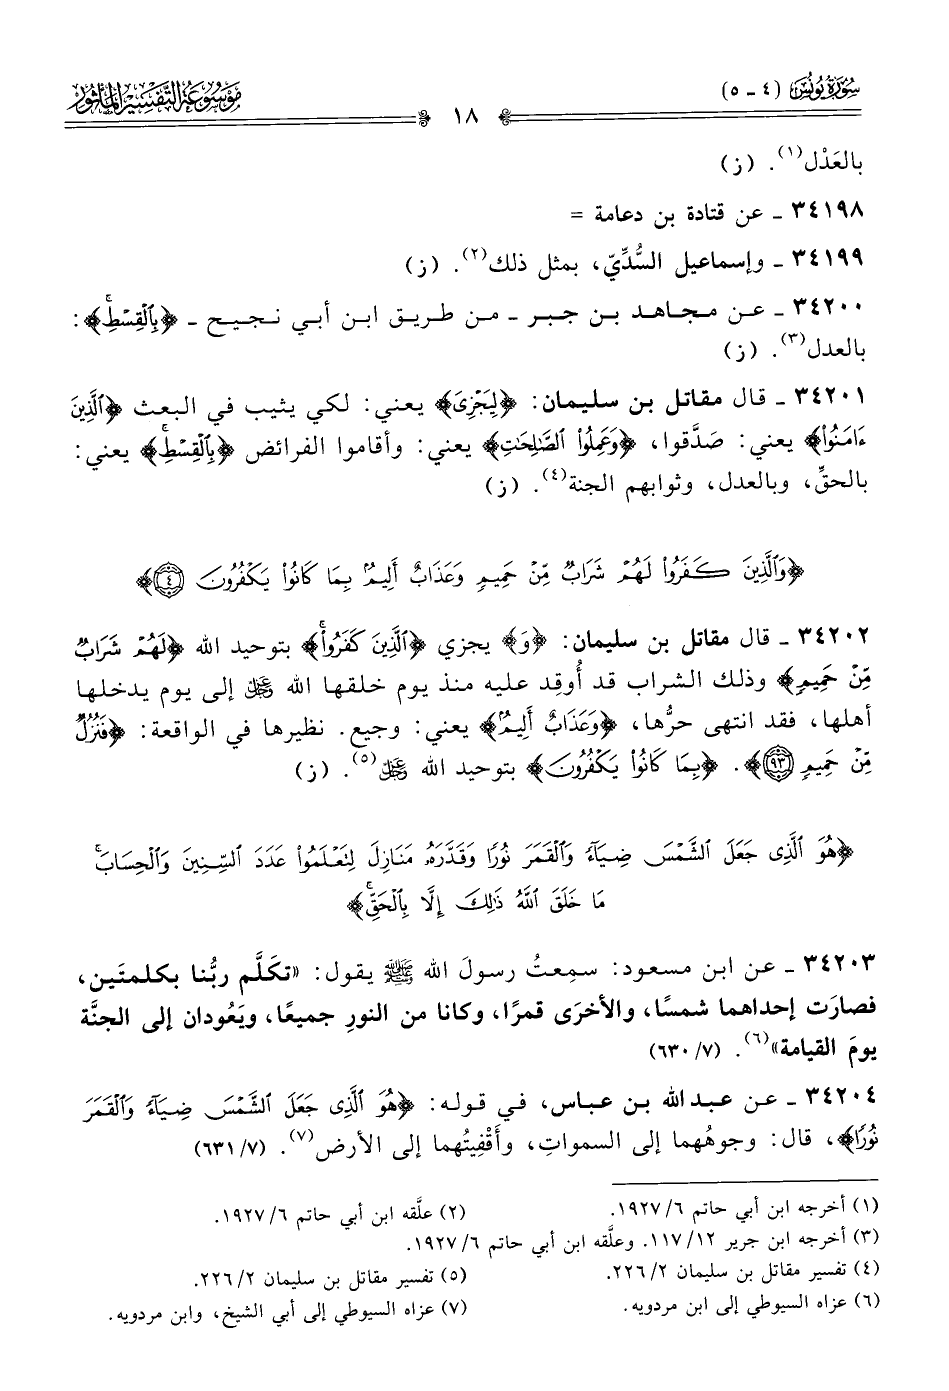 سورة يونس (٤ - ٥)
١٨
موسوعة التفسير المأثور
بالعَدْل(١). (ز)
٣٤١٩٨ - عن قتادة بن دعامة =
٣٤١٩٩ - وإسماعيل السُّدِّيّ، بمثل ذلك(٢). (ز)
٣٤٢٠٠ - عن مجاهد بن جبر - من طريق ابن أبي نجيح - ﴿بِٱلْقِسْطِۚ﴾:
بالعدل(٣). (ز)
٣٤٢٠١ - قال مقاتل بن سليمان: ﴿لِيَجْزِىَ﴾ يعني: لكي يثيب في البعث ﴿ٱلَّذِينَ
ءَامَنُوا۟﴾ يعني: صَدَّقوا، ﴿وَعَمِلُوا۟ ٱلصَّٰلِحَٰتِ﴾ يعني: وأقاموا الفرائض ﴿بِٱلْقِسْطِۚ﴾ يعني:
بالحقِّ، وبالعدل، وثوابهم الجنة(٤). (ز)
﴿وَٱلَّذِينَ كَفَرُوا۟ لَهُمْ شَرَابٌ مِّنْ حَمِيمٍ وَعَذَابٌ أَلِيمٌۢ بِمَا كَانُوا۟ يَكْفُرُونَ ٤﴾
٣٤٢٠٢ - قال مقاتل بن سليمان: ﴿وَ﴾ يجزي ﴿ٱلَّذِينَ كَفَرُوا۟ۚ﴾ بتوحيد الله ﴿لَهُمْ شَرَابٌ
مِّنْ حَمِيمٍ﴾ وذلك الشراب قد أُوقِد عليه منذ يوم خلقها الله ﷿ إلى يوم يدخلها
أهلها، فقد انتهى حرُّها، ﴿وَعَذَابٌ أَلِيمٌۢ﴾ يعني: وجيع. نظيرها في الواقعة: ﴿فَنُزُلٌ
مِّنْ حَمِيمٍ ٩٣﴾. ﴿بِمَا كَانُوا۟ يَكْفُرُونَ﴾ بتوحيد الله ﷿(٥). (ز)
﴿هُوَ ٱلَّذِى جَعَلَ ٱلشَّمْسَ ضِيَآءً وَٱلْقَمَرَ نُورًا وَقَدَّرَهُۥ مَنَازِلَ لِتَعْلَمُوا۟ عَدَدَ ٱلسِّنِينَ وَٱلْحِسَابَۚ
مَا خَلَقَ ٱللَّهُ ذَٰلِكَ إِلَّا بِٱلْحَقِّۚ﴾
٣٤٢٠٣ - عن ابن مسعود: سمِعتُ رسولَ الله ﷺ يقول: «تكَلَّم ربُّنا بكلمتَين،
فصارَت إحداهما شمسًا، والأخرَى قمرًا، وكانا من النورِ جميعًا، ويَعُودان إلى الجنَّة
يومَ القيامة»(٦). (٧/ ٦٣٠)
٣٤٢٠٤ - عن عبد الله بن عباس، في قوله: ﴿هُوَ ٱلَّذِى جَعَلَ ٱلشَّمْسَ ضِيَآءً وَٱلْقَمَرَ
نُورًا﴾، قال: وجوهُهما إلى السمواتِ، وأَقْفِيتُهما إلى الأرض(٧). (٧/ ٦٣١)
(١) أخرجه ابن أبي حاتم ٦/ ١٩٢٧.
(٢) علَّقه ابن أبي حاتم ٦/ ١٩٢٧.
(٣) أخرجه ابن جرير ١٢/ ١١٧. وعلَّقه ابن أبي حاتم ٦/ ١٩٢٧.
(٤) تفسير مقاتل بن سليمان ٢/ ٢٢٦.
(٥) تفسير مقاتل بن سليمان ٢/ ٢٢٦.
(٦) عزاه السيوطي إلى ابن مردويه.
(٧) عزاه السيوطي إلى أبي الشيخ، وابن مردويه.